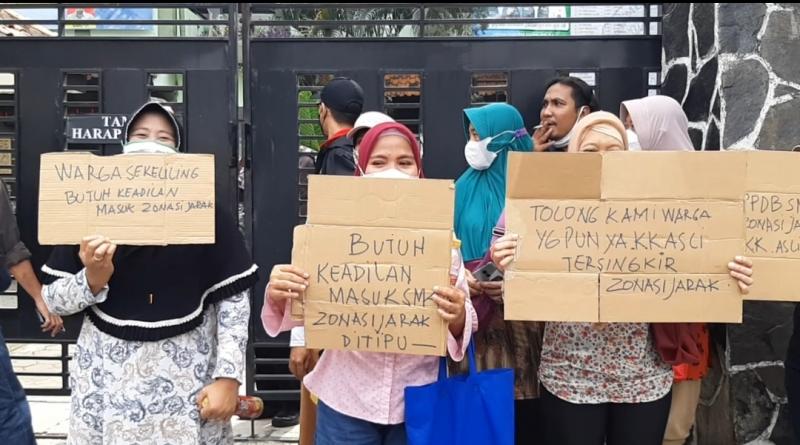 TAM
HARAP
WARGA SEKELILING
BUTUH KEADILAN
MASUK ZONASI JARAK
BUTUH
KEADILAN
MASUK SMA
ZONASI JARAK
DITIPU —
TOLONG KAMI WARGA
YG PUNYA KK ASLI
TERSINGKIR
ZONASI JARAK
PPDB SM
ZONASI JA
KK. ASL